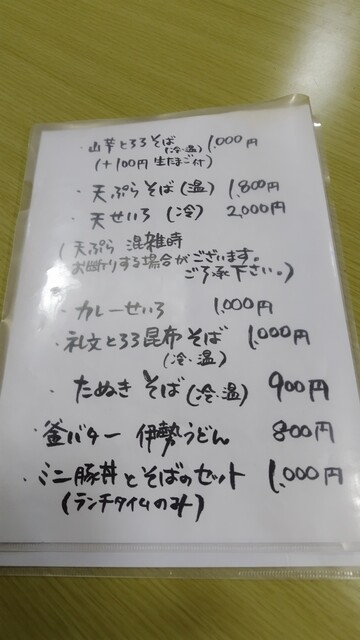 ・山芋とろろそば(冷・温) 1,000円
(+100円 生たまご付)
・天ぷらそば(温) 1,800円
・天せいろ(冷) 2,000円
(天ぷら 混雑時
お断りする場合がございます。
ご了承下さい。)
・カレーせいろ 1,000円
・礼文とろろ昆布そば 1,000円
(冷・温)
・たぬきそば(冷・温) 900円
・釜バター 伊勢うどん 800円
・ミニ豚丼とそばのセット 1,000円
(ランチタイムのみ)